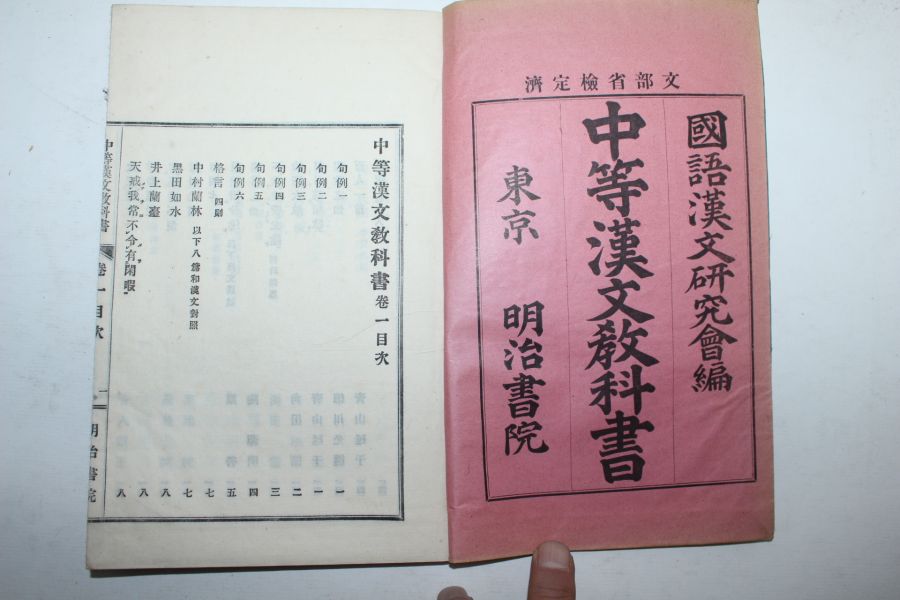 文部省檢定濟
國語漢文硏究會編
中等漢文敎科書
東京 明治書院
中等漢文敎科書 卷一目次
句例一 一
句例二 一
句例三 二
句例四 三
句例五 四
句例六 五
格言 四則 七
中村蘭林 以下八篇和漢文對照 七
黑田如水 八
井上蘭臺 八
天戒我常不令有閑暇 八
中等漢文敎科書 卷一目次 一 明治書院